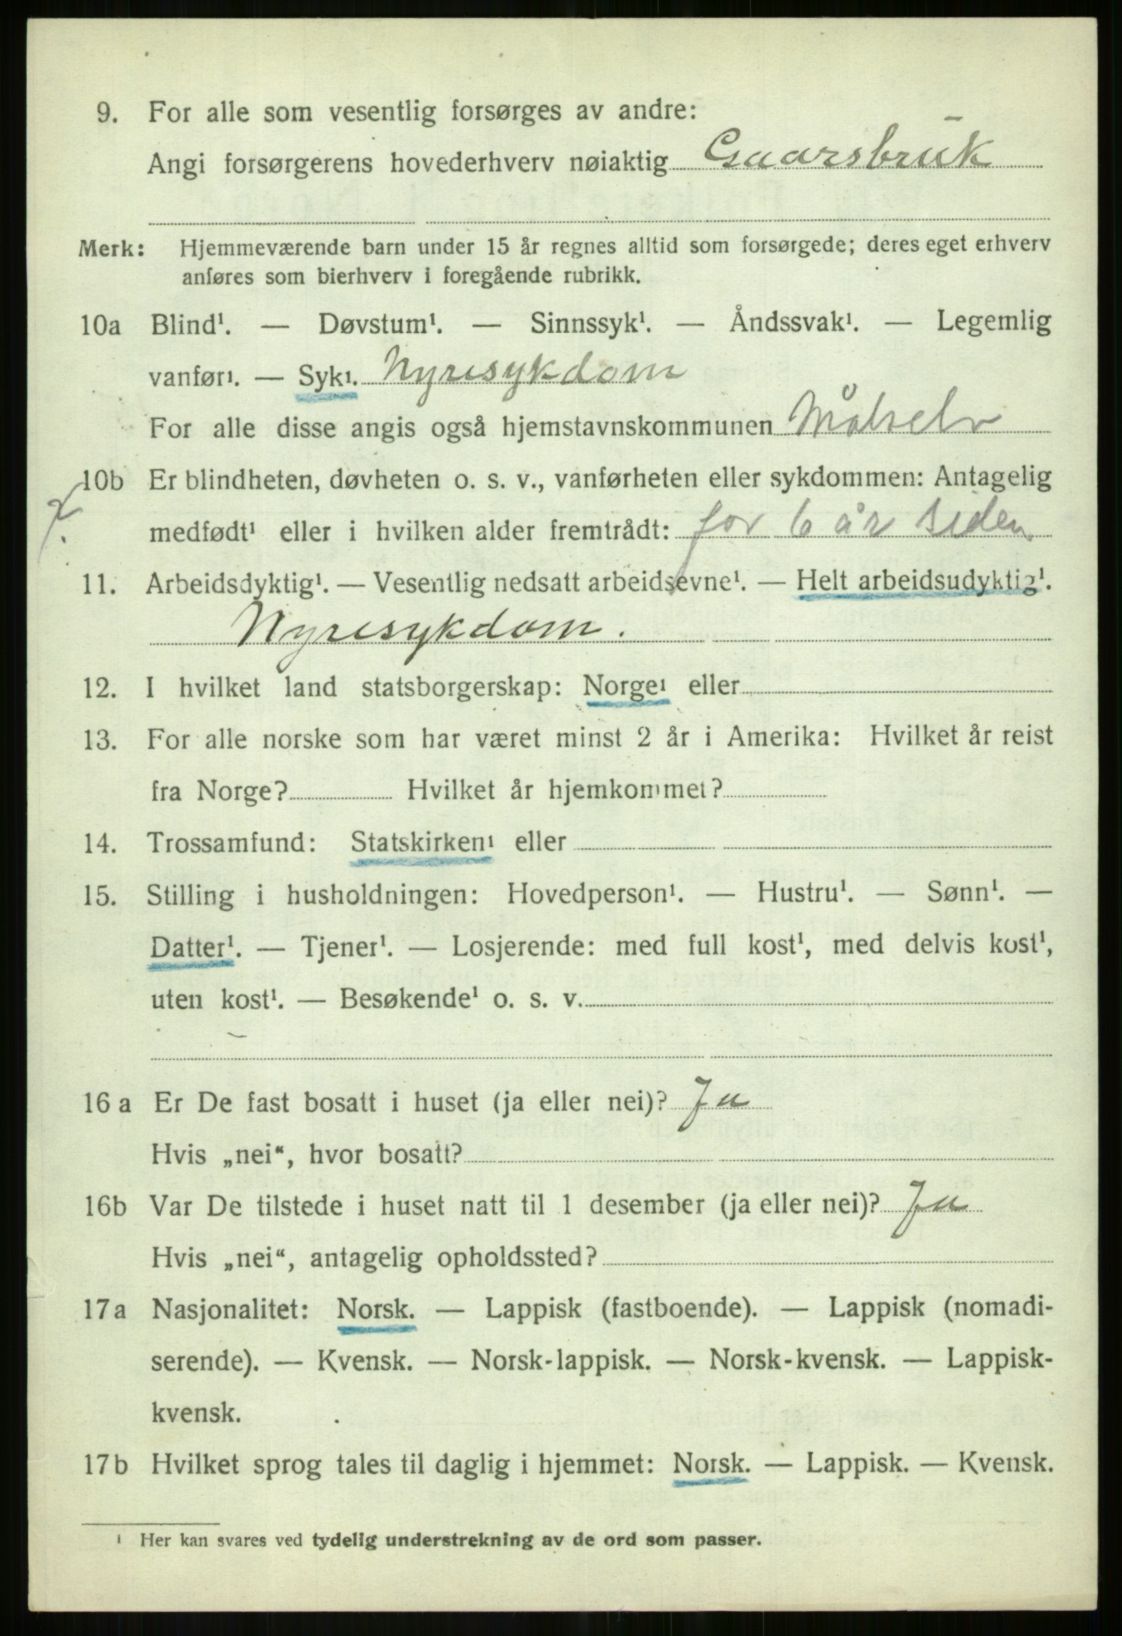 9. For alle som vesentlig forsørges av andre:
Angi forsørgerens hovederhverv nøiaktig Gaarsbruk
Merk: Hjemmeværende barn under 15 år regnes alltid som forsørgede; deres eget erhverv
anføres som bierhverv i foregående rubrikk.
10a Blind¹. — Døvstum¹. — Sinnssyk¹. — Åndssvak¹. — Legemlig
vanfør¹. — Syk¹. Nyresykdom
For alle disse angis også hjemstavnskommunen Målselv
10b Er blindheten, døvheten o. s. v., vanførheten eller sykdommen: Antagelig
medfødt¹ eller i hvilken alder fremtrådt: for 6 år siden
11. Arbeidsdyktig¹. — Vesentlig nedsatt arbeidsevne¹. — Helt arbeidsudyktig¹.
Nyresykdom.
12. I hvilket land statsborgerskap: Norge¹ eller
13. For alle norske som har været minst 2 år i Amerika: Hvilket år reist
fra Norge? Hvilket år hjemkommet?
14. Trossamfund: Statskirken¹ eller
15. Stilling i husholdningen: Hovedperson¹. — Hustru¹. — Sønn¹. —
Datter¹. — Tjener¹. — Losjerende: med full kost¹, med delvis kost¹,
uten kost¹. — Besøkende¹ o. s. v.
16a Er De fast bosatt i huset (ja eller nei)? Ja
Hvis „nei“, hvor bosatt?
16b Var De tilstede i huset natt til 1 desember (ja eller nei)? Ja
Hvis „nei“, antagelig opholdssted?
17a Nasjonalitet: Norsk. — Lappisk (fastboende). — Lappisk (nomadi-
serende). — Kvensk. — Norsk-lappisk. — Norsk-kvensk. — Lappisk-
kvensk.
17b Hvilket sprog tales til daglig i hjemmet: Norsk. — Lappisk. — Kvensk.
¹ Her kan svares ved tydelig understrekning av de ord som passer.